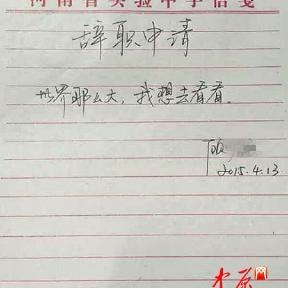 河南省实验中学信笺
辞职申请
世界那么大，我想去看看。
2015.4.13
大河网